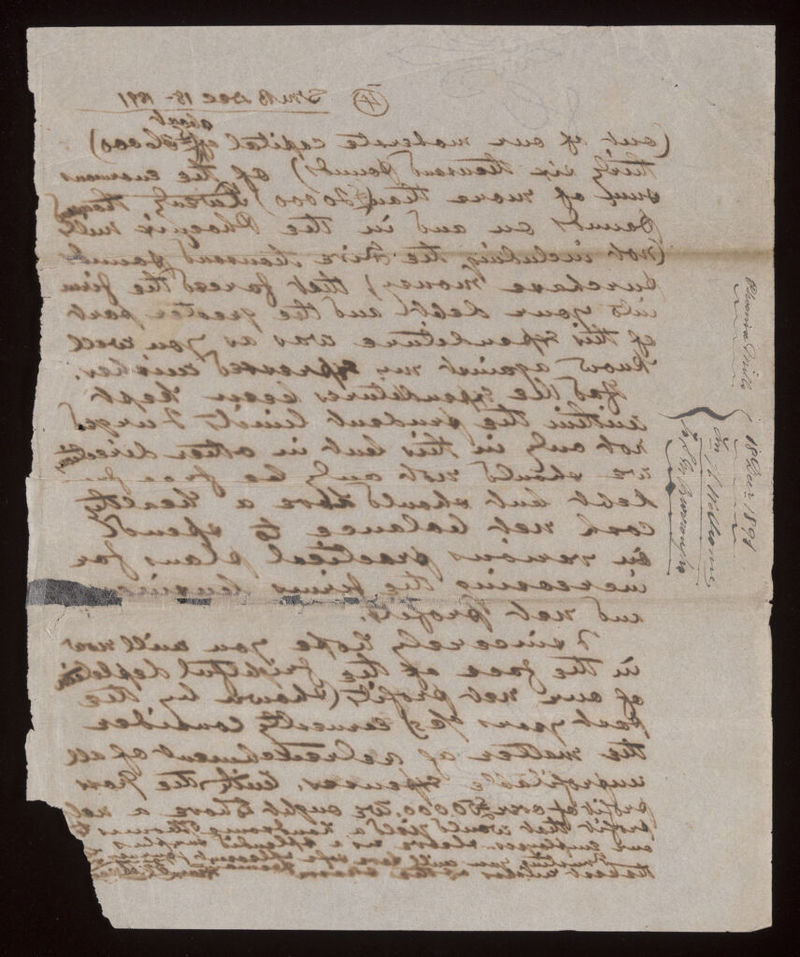 (4) SMB Dec 18 - 1891
(out of our moderate capital of about £36000
thirty six thousand pounds) of the enormous
sum of more than (£30000) thirty thousand
pounds on and in the Phoenix mills
(not including the five thousand pounds
purchase money) that forced the firm
into your debt and the greater part
of this expenditure was as you well
know against my expressed wishes.
Had the expenditures been kept
within the prudent limit I urged
not only in this but in other directions
we should not only be free from
debt but should have a healthy
cash net balance to spend
in various practical plans for
increasing the firms business
and net profits.
I sincerely hope you will now
in the face of the frightful depletion
of our net profit (shown by the
last years) earnestly consider
the matter of retrenchment of all
unprofitable expenses. With the gross
profit of over £50000 we ought to have a net
profit that would yield a
our employees
Phoenix Mills
18 Decr 1891
Wellcome
to S M Burroughs